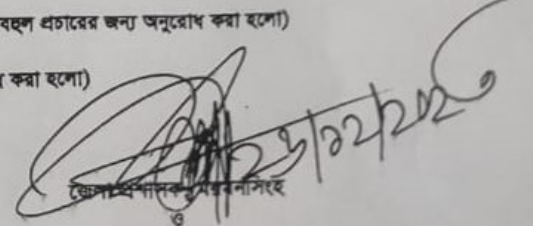 বহুল প্রচারের জন্য অনুরোধ করা হলো)
করা হলো)
জেলা প্রশাসক, ময়মনসিংহ
ও